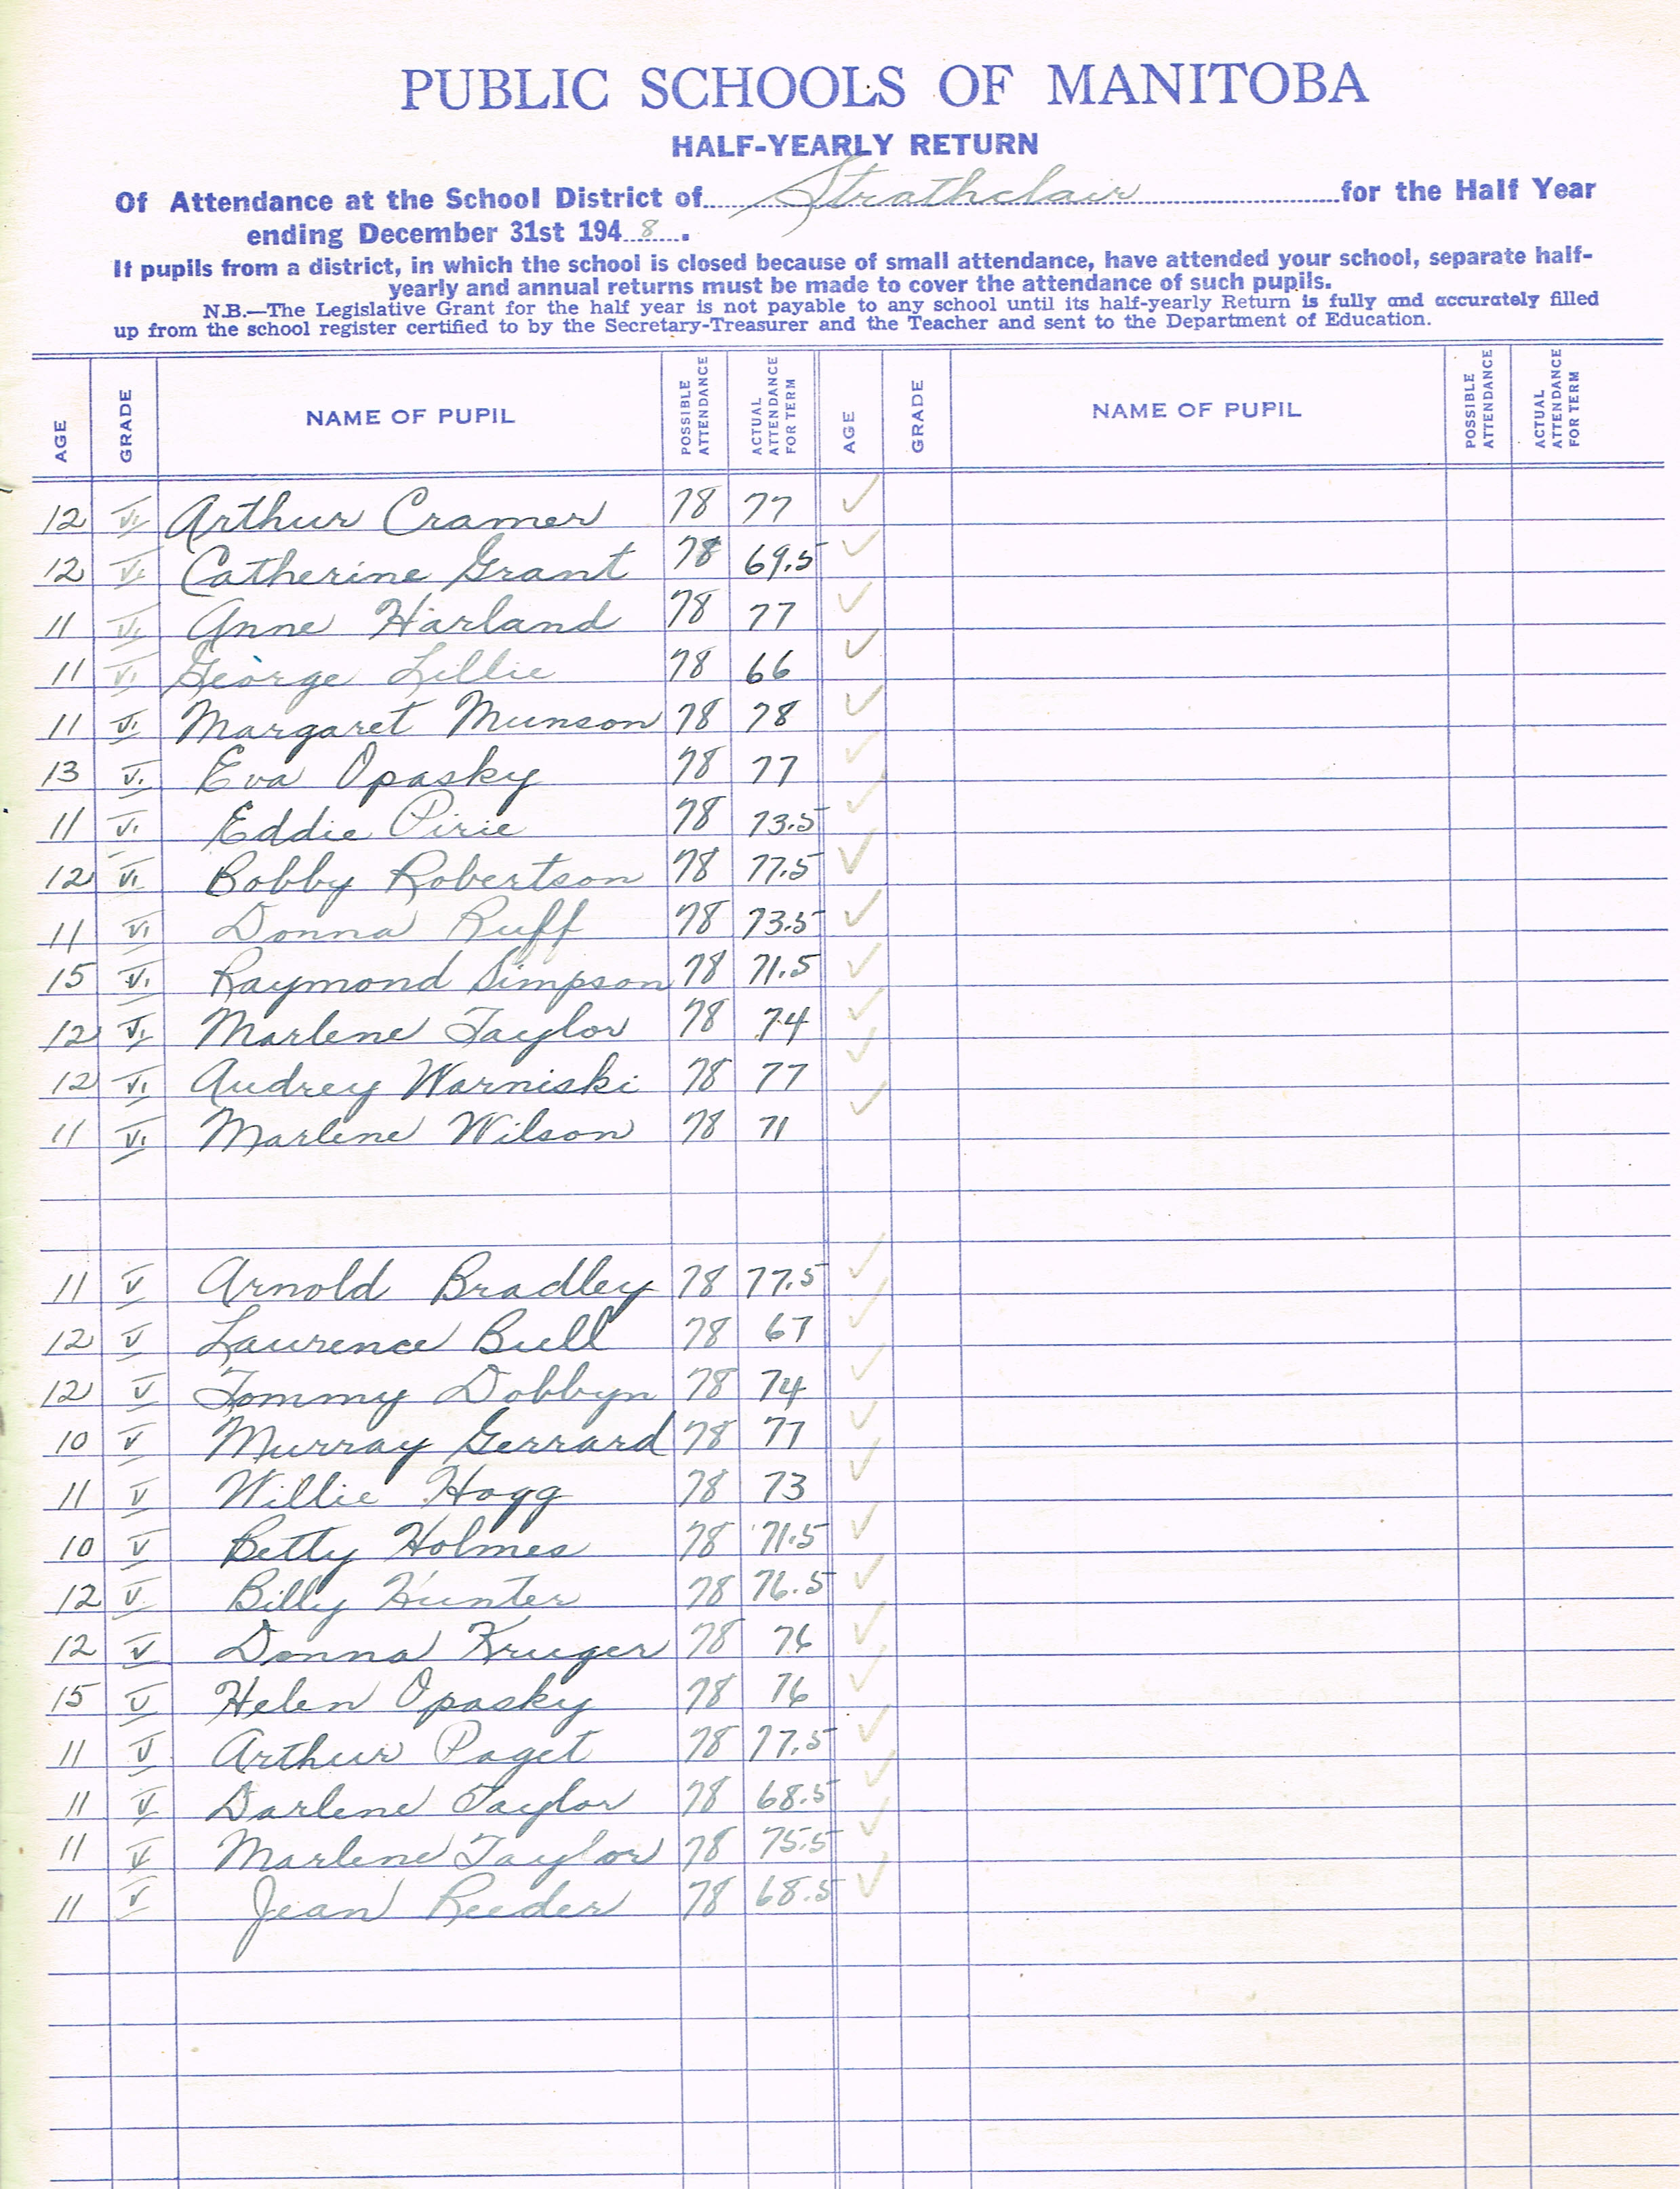 PUBLIC SCHOOLS OF MANITOBA
HALF-YEARLY RETURN
Of Attendance at the School District of Strathclair for the Half Year
ending December 31st 1948.
If pupils from a district, in which the school is closed because of small attendance, have attended your school, separate half-
yearly and annual returns must be made to cover the attendance of such pupils.
N.B.—The Legislative Grant for the half year is not payable to any school until its half-yearly Return is fully and accurately filled
up from the school register certified to by the Secretary-Treasurer and the Teacher and sent to the Department of Education.
AGE GRADE NAME OF PUPIL POSSIBLE ATTENDANCE ACTUAL ATTENDANCE FOR TERM AGE GRADE NAME OF PUPIL POSSIBLE ATTENDANCE ACTUAL ATTENDANCE FOR TERM
12 VI Arthur Cramer 78 77 ✓
12 VI Catherine Grant 78 69.5 ✓
11 VI Anne Harland 78 77 ✓
11 VI George Lillie 78 66 ✓
11 VI Margaret Munson 78 78 ✓
13 VI Eva Opasky 78 77 ✓
11 VI Eddie Pirie 78 73.5 ✓
12 VI Bobby Robertson 78 77.5 ✓
11 VI Donna Ruff 78 73.5 ✓
15 VI Raymond Simpson 78 71.5 ✓
12 VI Marlene Taylor 78 74 ✓
12 VI Audrey Warniski 78 77 ✓
11 VI Marlene Wilson 78 71 ✓
11 V Arnold Bradley 78 77.5 ✓
12 V Laurence Bull 78 67 ✓
12 V Tommy Dobbyn 78 74 ✓
10 V Murray Gerrard 78 77 ✓
11 V Willie Hogg 78 73 ✓
10 V Betty Holmes 78 71.5 ✓
12 V Billy Hunter 78 76.5 ✓
12 V Donna Kruger 78 76 ✓
15 V Helen Opasky 78 76 ✓
11 V Arthur Paget 78 77.5 ✓
11 V Darlene Taylor 78 68.5 ✓
11 V Marlene Taylor 78 75.5 ✓
11 V Jean Reeder 78 68.5 ✓